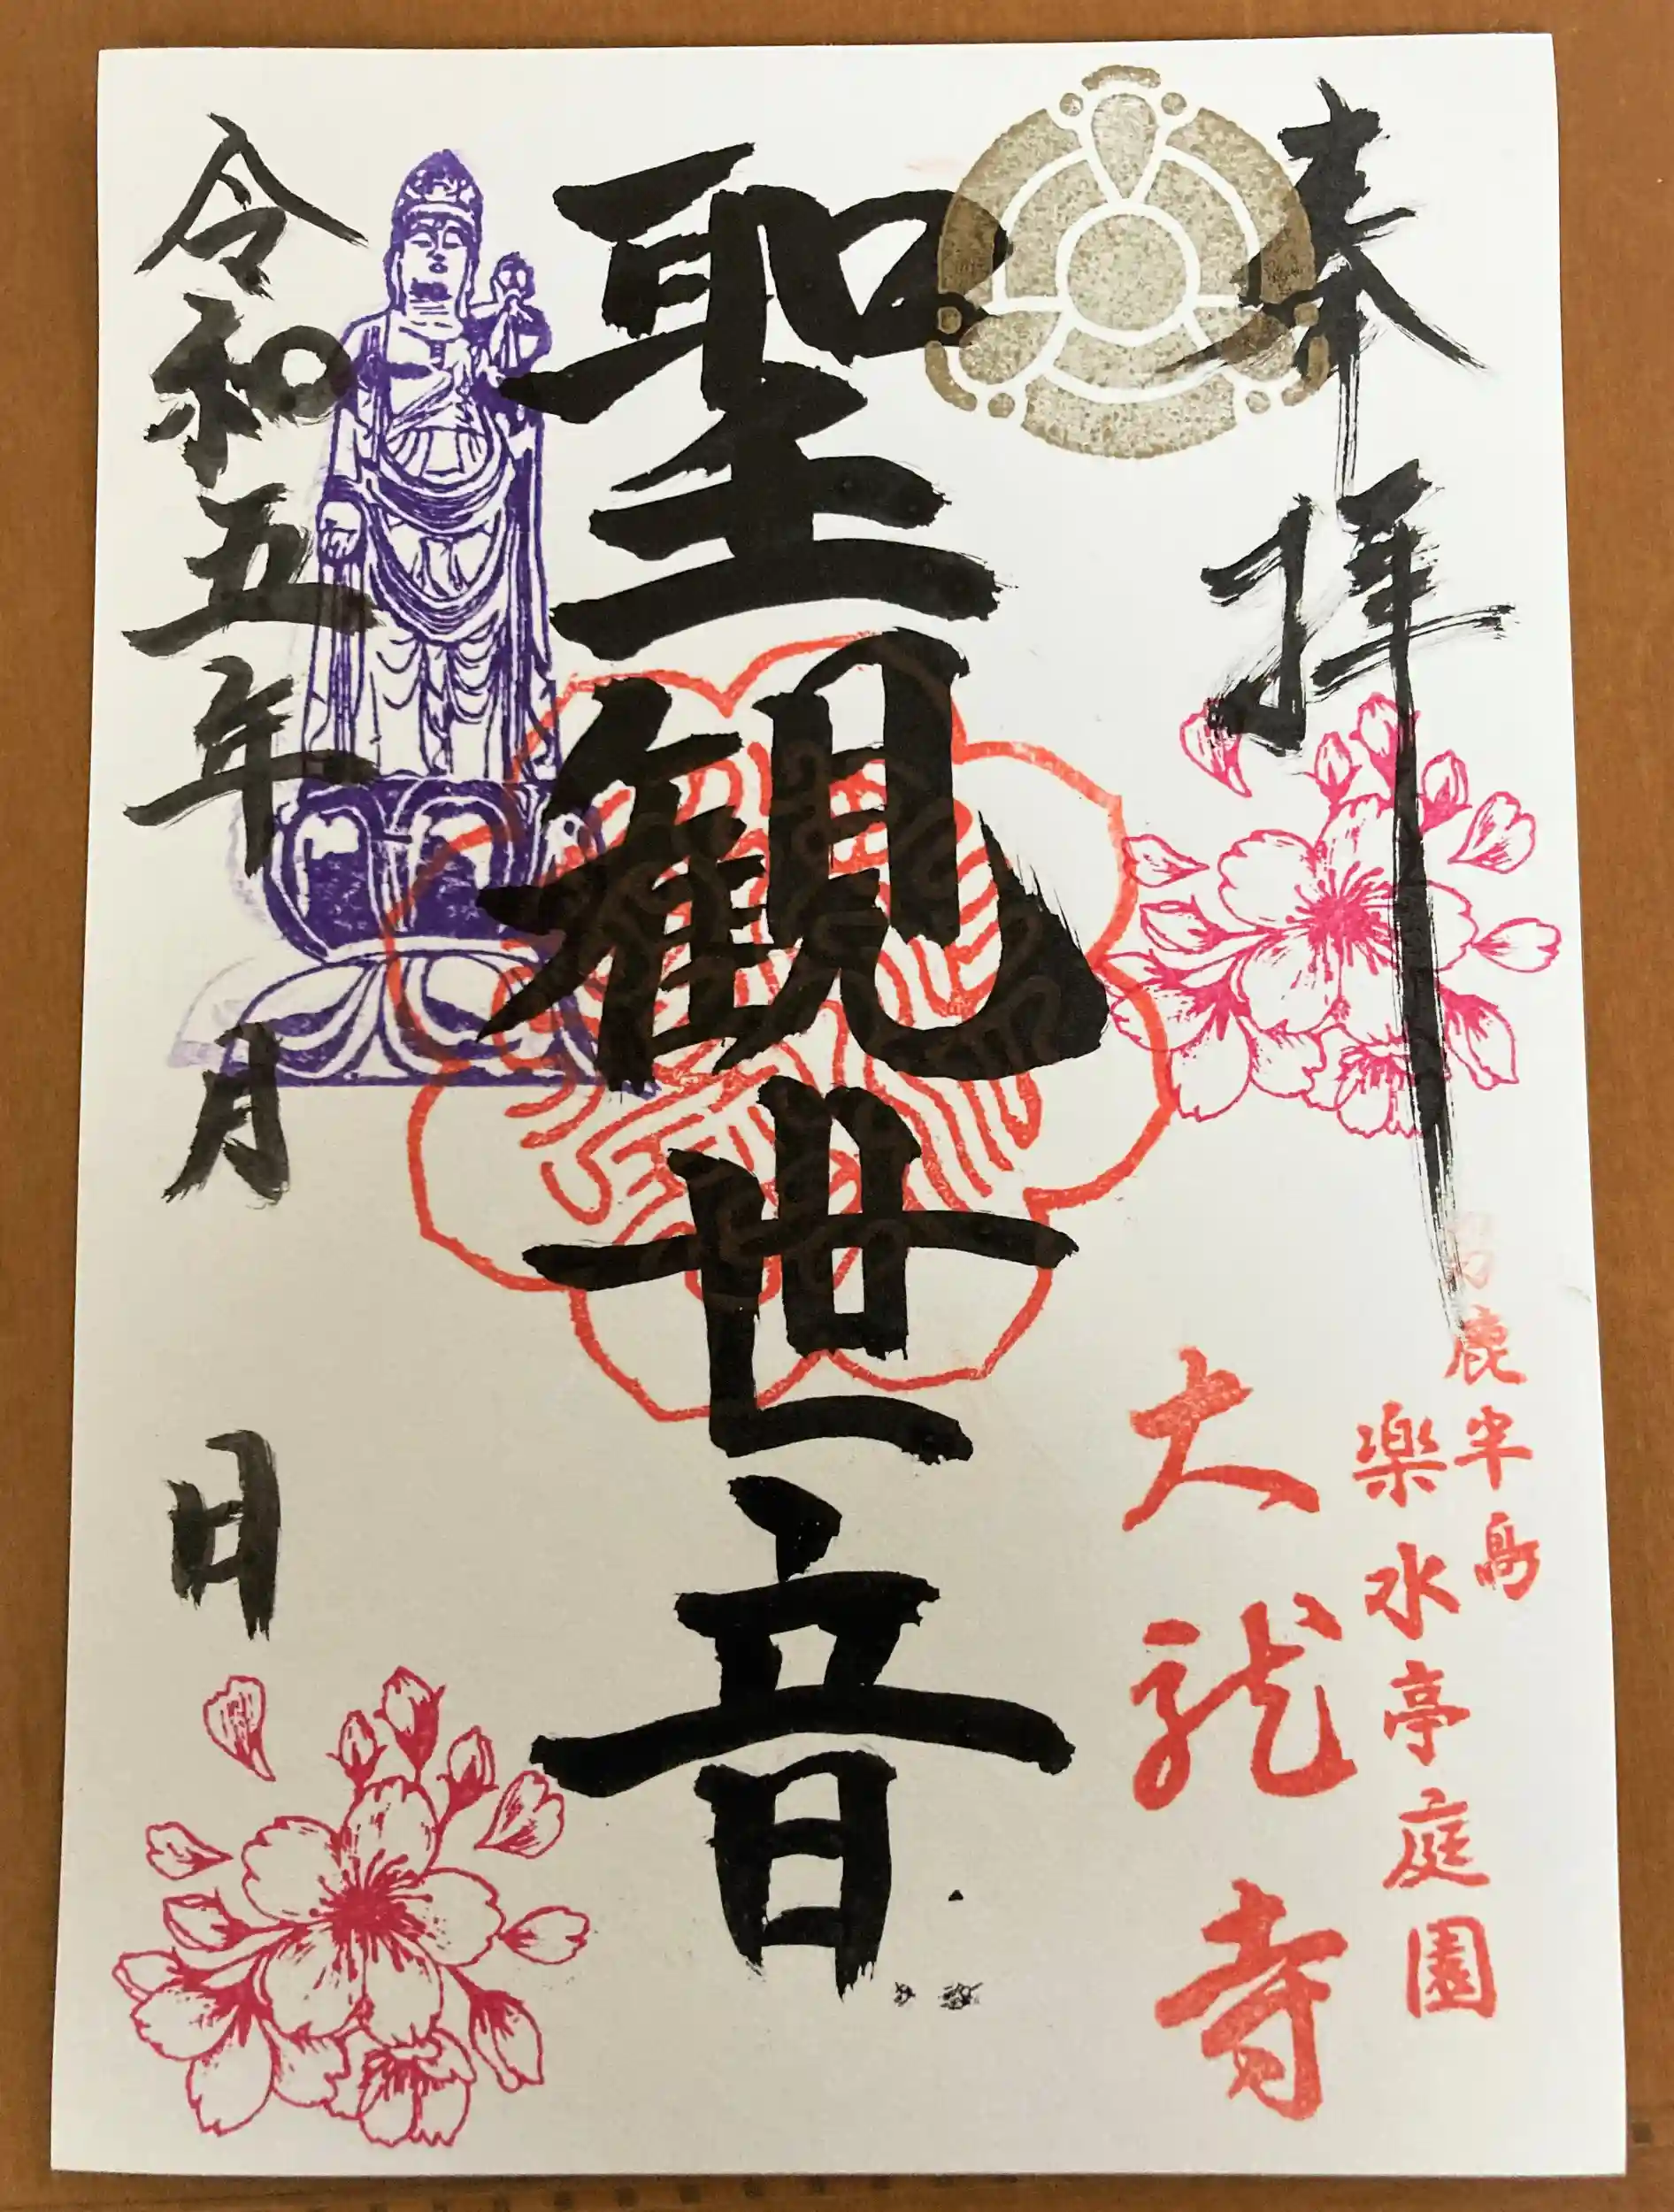 奉拝
男鹿半島
楽水亭庭園
大龍寺
聖観世音
令和五年 月 日